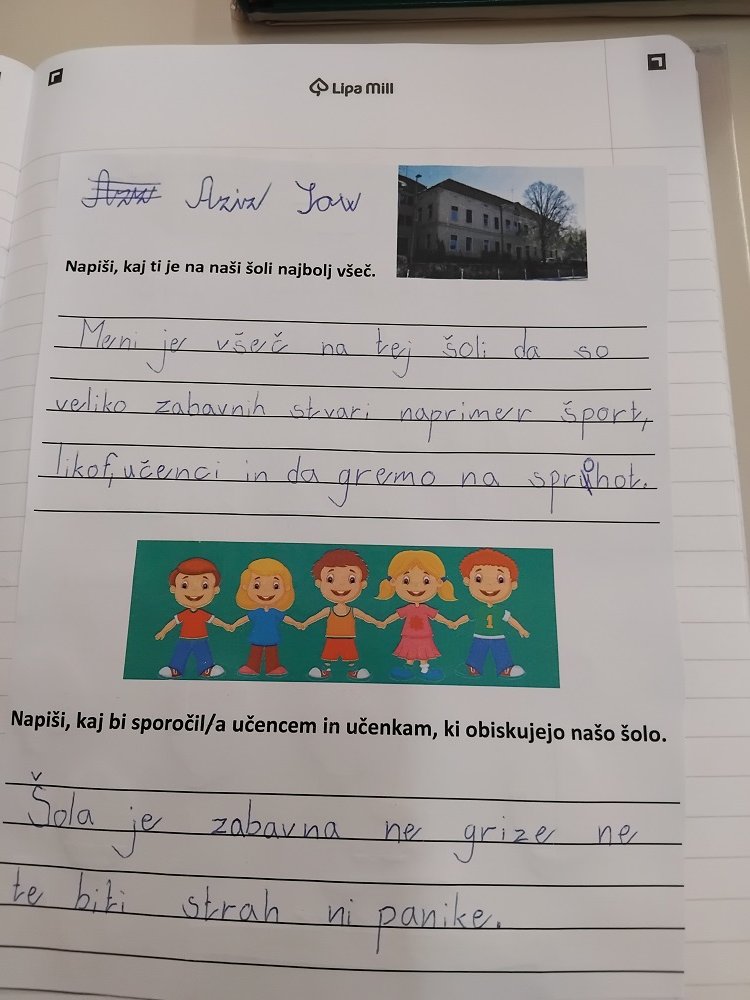 Lipa Mill
Aziz Aziz Jaw
Napiši, kaj ti je na naši šoli najbolj všeč.
Meni je všeč na tej šoli da so
veliko zabavnih stvari naprimer šport,
likof, učenci in da gremo na sprihot.
1
Napiši, kaj bi sporočil/a učencem in učenkam, ki obiskujejo našo šolo.
Šola je zabavna ne grize ne
te biti strah ni panike.